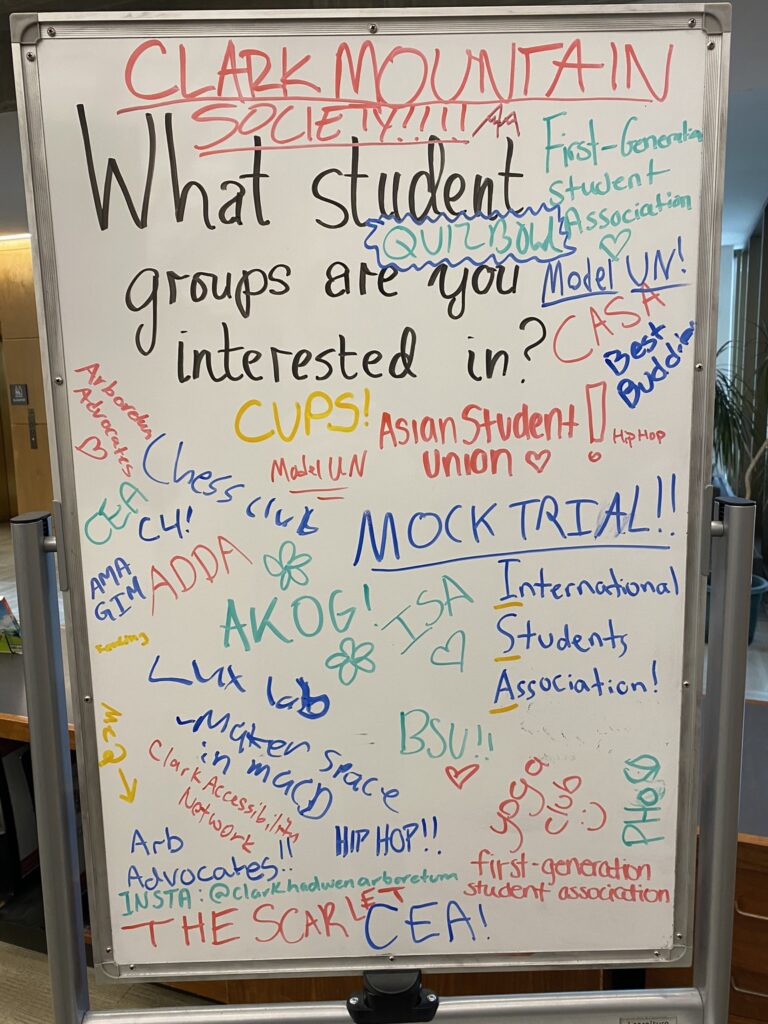 CLARK MOUNTAIN
SOCIETY!!!!!
What student
groups are you
interested in?
QUIZ BOWL
First-Generation
Student
Association
Model UN!
CASA
Best
Buddies
Arboretum
Advocates
CUPS!
Asian Student
Union
!
Hip Hop
Model UN
Chess club
CEA
C4!
MOCK TRIAL!!
AMA
GIM
ADDA
AKOG!
ISA
International
Students
Association!
Lux lab
-Maker space
in MACD
BSU!!
Clark Accessibility
Network
yoga
club
Arb
Advocates!!
HIP HOP!!
INSTA: @clarkhadwenarboretum
first-generation
student association
THE SCARLET
CEA!